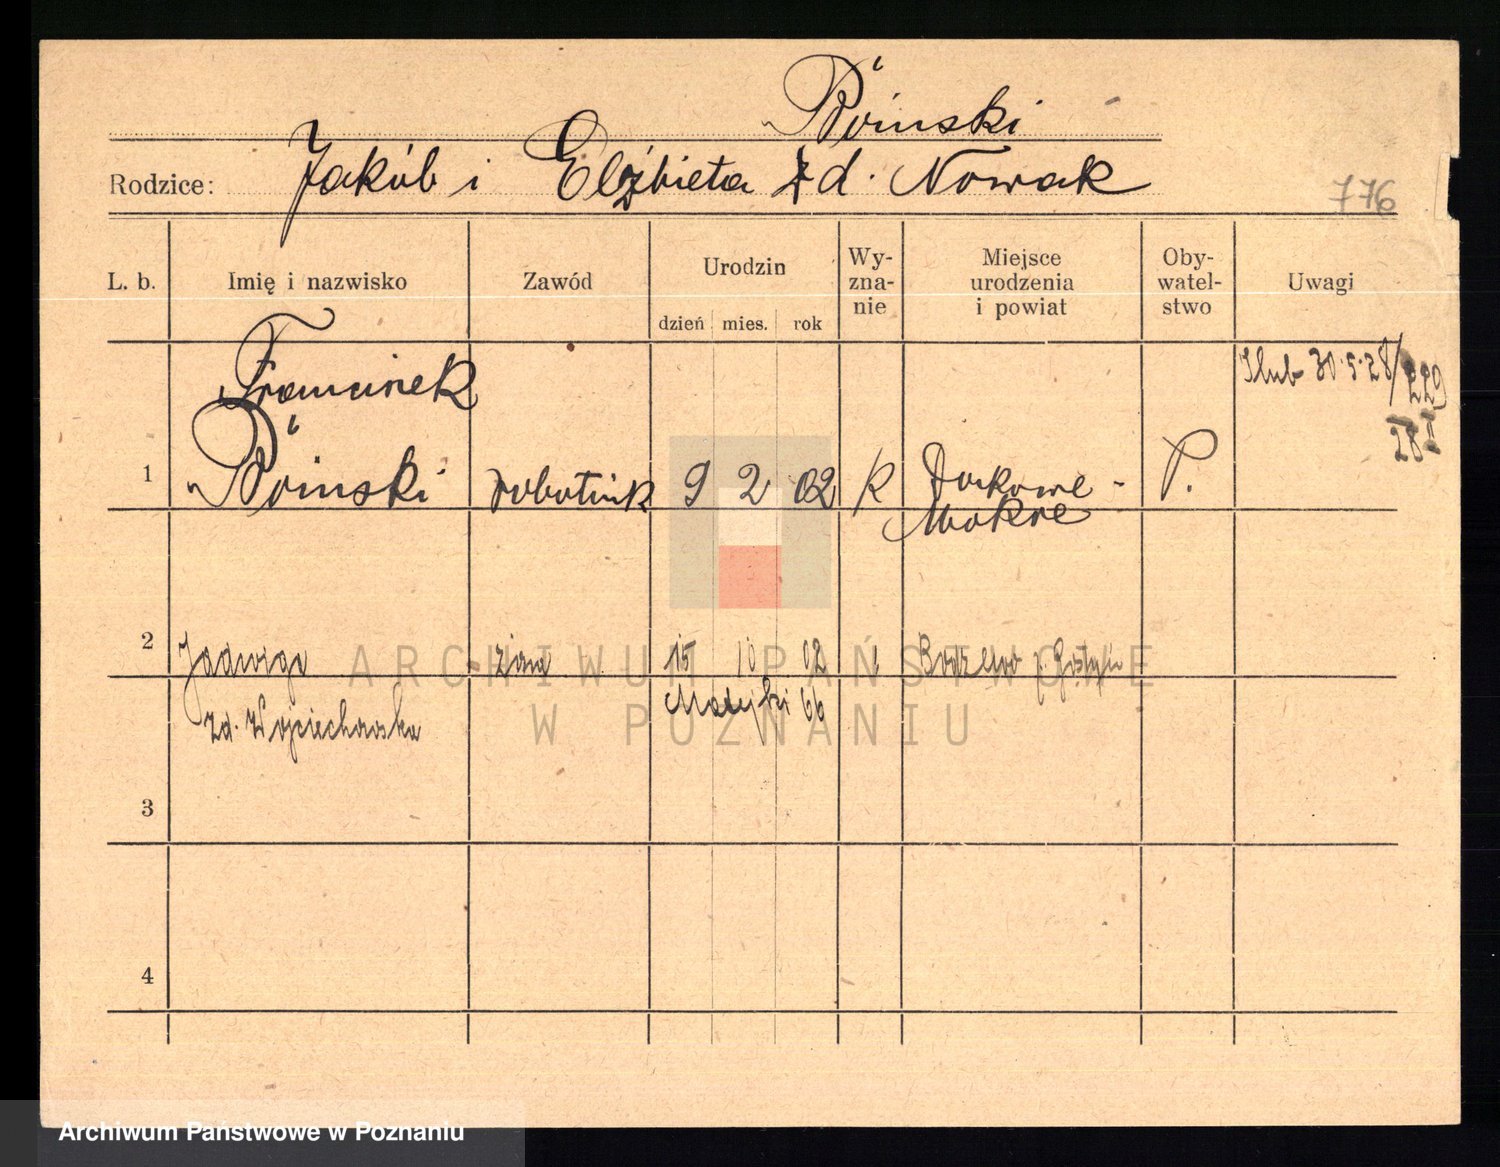 Bóinski
Rodzice: Jakób i Elżbieta zd. Nowak
776
L. b. Imię i nazwisko Zawód Urodzin Wy-zna-nie Miejsce urodzenia i powiat Oby-watel-stwo Uwagi
dzień mies. rok
Ślub 30.5.28/229
28 II
Franciszek
1 Bóinski robotnik 9 2 02 k P.
Mokre
2 Jadwiga żona 15 10 02
zd. Wojciechowska Matejki 66
3
4
ARCHIWUM PAŃSTWOWE
W POZNANIU
Archiwum Państwowe w Poznaniu